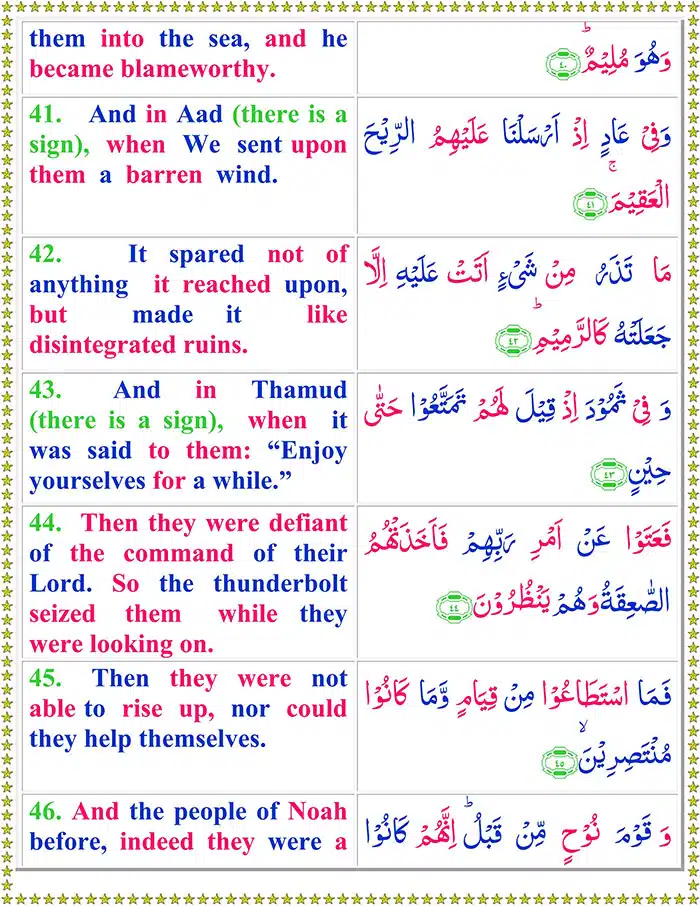 them into the sea, and he
became blameworthy.
وَهُوَ مُلِيْمٌ ؕ ٤٠
41. And in Aad (there is a
sign), when We sent upon
them a barren wind.
وَفِىْ عَادٍ اِذْ اَرْسَلْنَا عَلَيْهِمُ الرِّيْحَ
الْعَقِيْمَ ۚ ٤١
42. It spared not of
anything it reached upon,
but made it like
disintegrated ruins.
مَا تَذَرُ مِنْ شَىْءٍ اَتَتْ عَلَيْهِ اِلَّا
جَعَلَتْهُ كَالرَّمِيْمِ ؕ ٤٢
43. And in Thamud
(there is a sign), when it
was said to them: “Enjoy
yourselves for a while.”
وَ فِىْ ثَمُوْدَ اِذْ قِيْلَ لَهُمْ تَمَتَّعُوْا حَتّٰى
حِيْنٍ ٤٣
44. Then they were defiant
of the command of their
Lord. So the thunderbolt
seized them while they
were looking on.
فَعَتَوْا عَنْ اَمْرِ رَبِّهِمْ فَاَخَذَتْهُمُ
الصّٰعِقَةُ وَهُمْ يَنْظُرُوْنَ ٤٤
45. Then they were not
able to rise up, nor could
they help themselves.
فَمَا اسْتَطَاعُوْا مِنْ قِيَامٍ وَّمَا كَانُوْا
مُنْتَصِرِيْنَ ۙ ٤٥
46. And the people of Noah
before, indeed they were a
وَ قَوْمَ نُوْحٍ مِّنْ قَبْلُ ؕ اِنَّهُمْ كَانُوْا